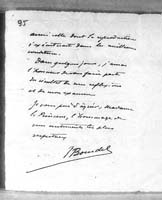 95
avoir celle dont la reproduction
s'exécuterait dans les meilleures
conditions.
Dans quelques jours, j'aurai
l'honneur de vous faire part
du résultat de mes réflexions
et de mon examen.
Je vous prie d'agréer, Madame
la Princesse, l'hommage de
mes sentiments les plus
respectueux